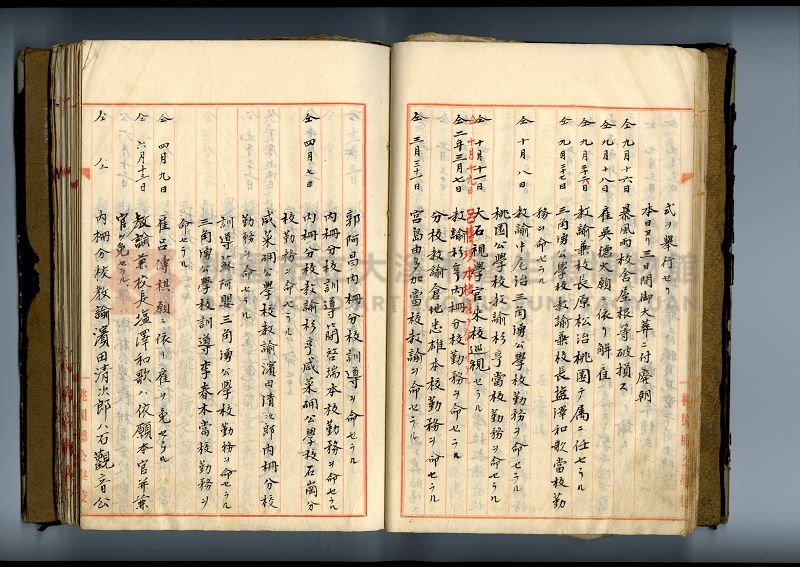 式ヲ舉行セリ
本日ヨリ三日間御大葬ニ付廢朝
仝 九月十六日 暴風雨校舍屋根等破損ス
仝 九月十八日 雇吳德火願ニ依リ解雇
教諭兼校長原松治桃園廳属ニ任セラル
仝 九月二十七日 三角湧公學校教諭兼校長塩澤和歌當校勤
務ヲ命セラル
仝 十月八日 教諭中尾治三角湧公學校勤務ヲ命セラル
桃園公學校教諭杉亨本校勤務ヲ命セラル
仝 十月十一日 大石視學官本校巡視セラル
仝 十月十九日
仝 二年三月七日 教諭杉亨内柵分校勤務ヲ命セラル
分校教諭倉地忠雄本校勤務ヲ命セラル
仝 三月三十一日 宮島由多加當校教諭ヲ命セラル
郭阿昌内柵分校訓導ヲ命セラル
内柵分校訓導簡登瑞本校勤務ヲ命セラル
仝 四月七日 内柵分校教諭杉亨咸菜硼公學校石崗分
校勤務ヲ命セラル
咸菜硼公學校教諭濱田清次郎内柵分校
勤務ヲ命セラル
訓導蘇阿嬰三角湧公學校勤務ヲ命セラル
三角湧公學校訓導李春木當校勤務ヲ
命セラル
仝 四月九日 雇呂傳棋願ニ依リ雇ヲ免セラル
仝 六月十三日 教諭兼校長塩澤和歌ハ依願本官并兼
官ヲ免セラル
仝 仝 内柵分校教諭濱田清次郎ハ石觀音公